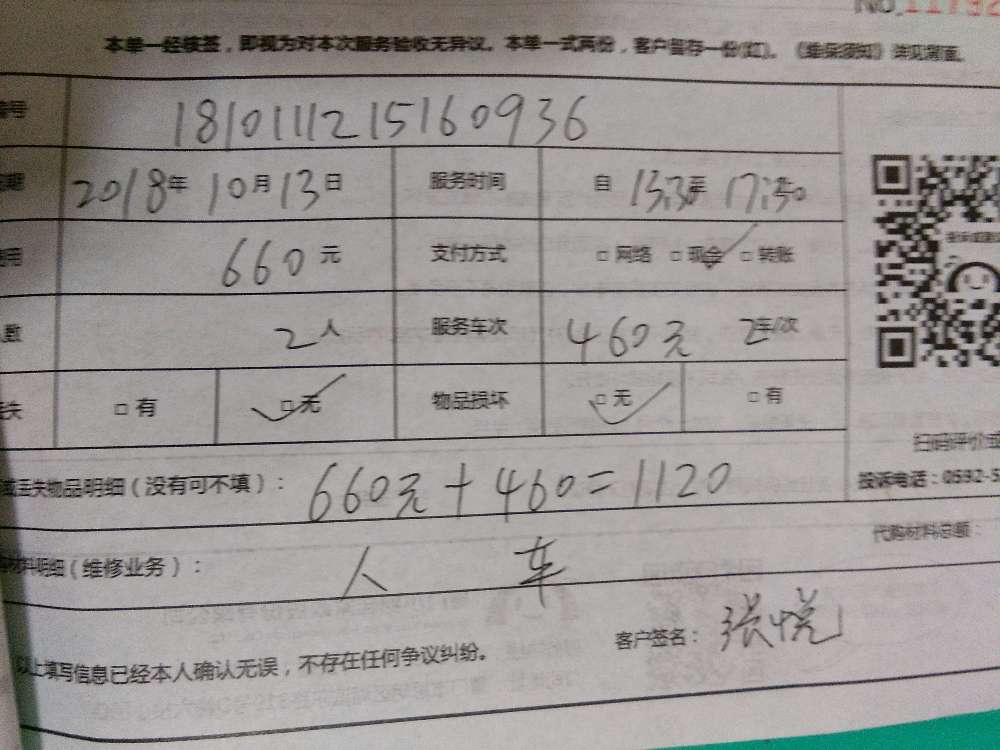 NO.11792
本单一经核签，即视为对本次服务验收无异议。本单一式两份，客户留存一份(红)。《维保须知》详见背面。
编号 181011121516 0936
日期 2018年 10月 13日 服务时间 自 13:30至 17:30
费用 660元 支付方式 □网络 □现金 □转账
人数 2人 服务车次 460元 2车/次
丢失 □有 □无 物品损坏 □无 □有
扫码评价或
或丢失物品明细（没有可不填）： 660元+460=1120
投诉电话：0592-5
代购材料总额：
材料明细（维修业务）： 人 车
客户签名： 张悦
以上填写信息已经本人确认无误，不存在任何争议纠纷。